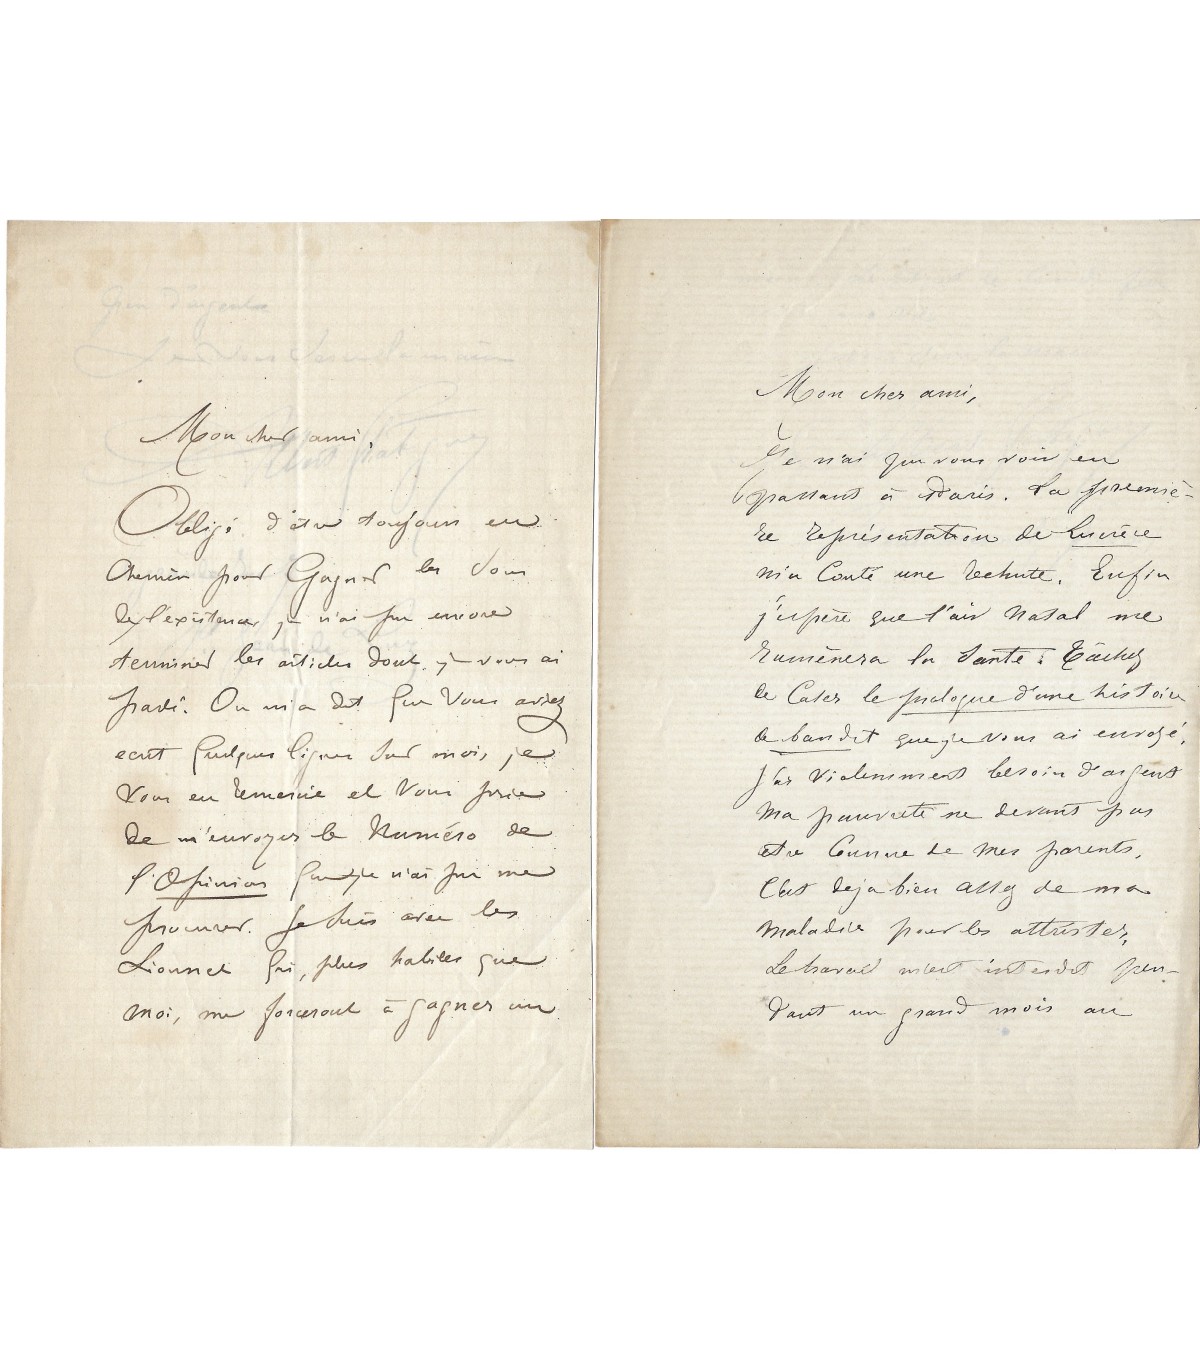 Mon cher ami,
Obligé d'être toujours en
chemin pour gagner les sous
de l'existence, je n'ai pu encore
terminer les articles dont je vous ai
parlé. On m'a dit que vous aviez
écrit quelques lignes sur moi, je
vous en remercie et vous prie
de m'envoyer le Numéro de
l'Opinion que je n'ai pu me
procurer. Je suis avec les
Lionnet qui, plus habiles que
moi, me forceront à gagner un
Mon cher ami,
Je n'ai pu vous voir en
passant à Paris. La premiè-
re représentation de Lucrèce
m'a Couté une rechute. Enfin
j'espère que l'air natal me
ramènera la Santé. Tâchez
de Caser le prologue d'une histoire
de bandit que je vous ai envoyé.
J'ai violemment besoin d'argent
ma pauvreté ne devant pas
être Connue de mes parents.
C'est déjà bien assez de ma
maladie pour les attrister.
Le travail m'est interdit pen-
dant un grand mois au